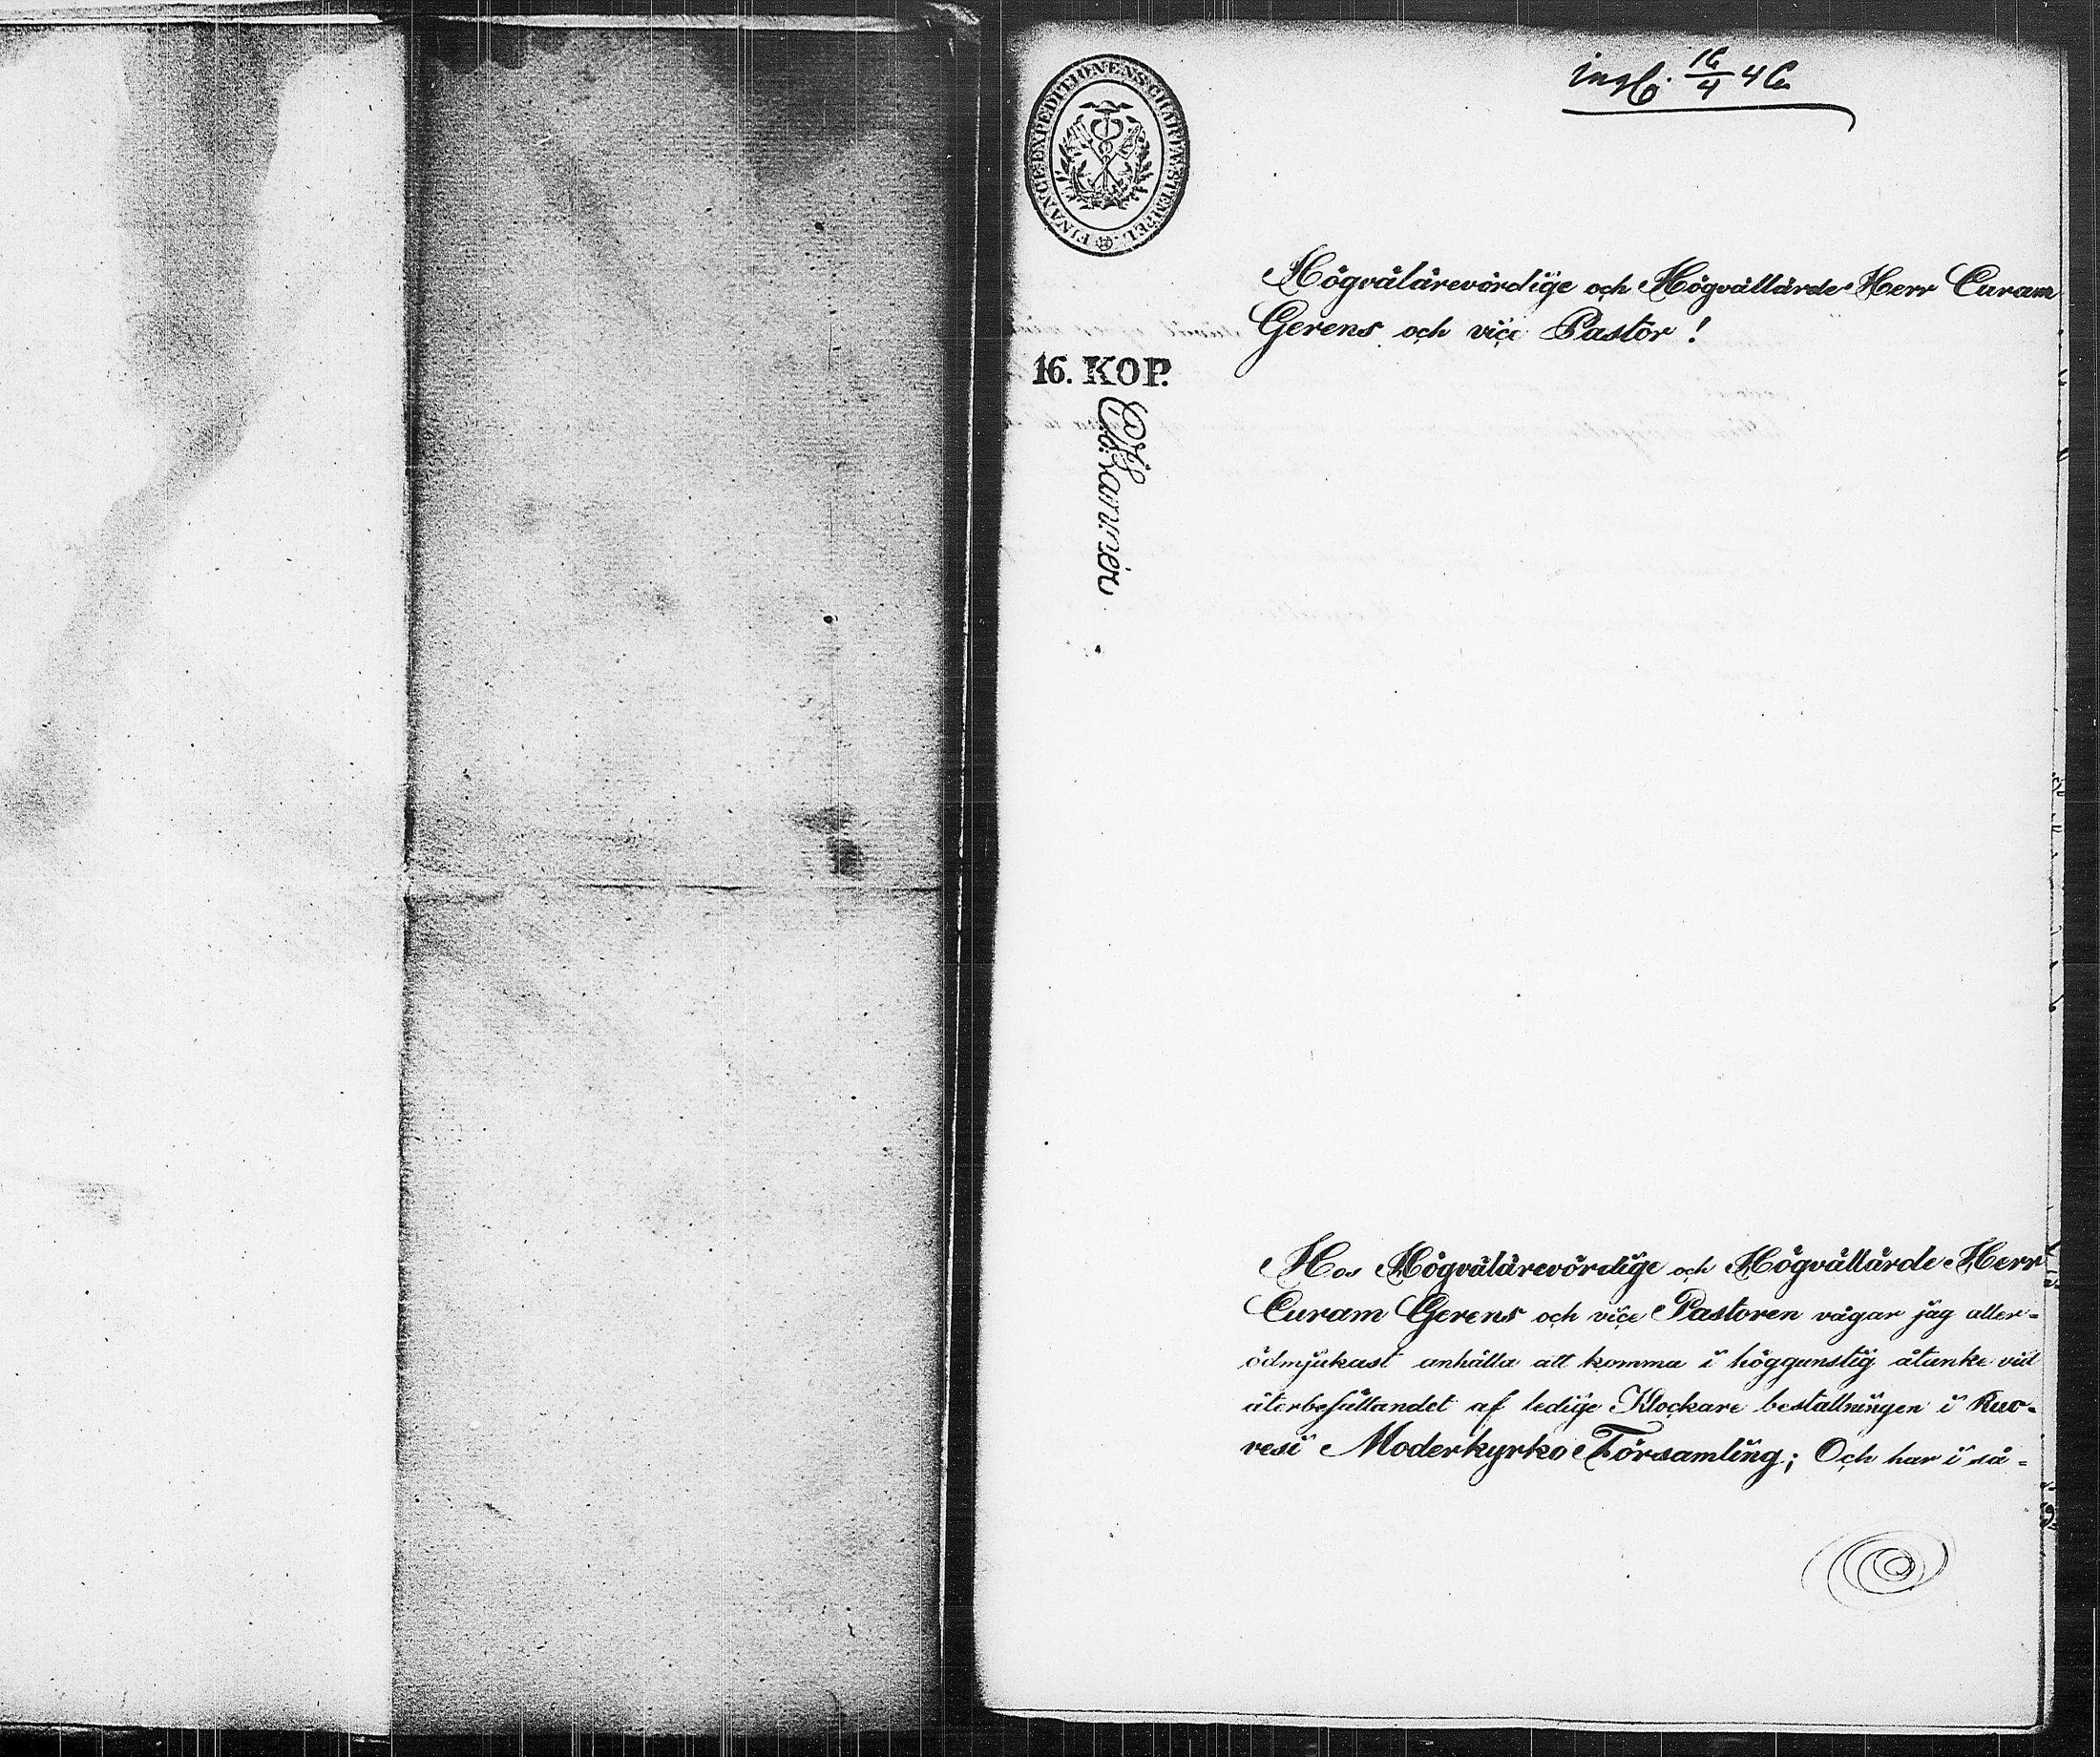 ingf. 16/4 46
FINANCEEXPEDITIONENS CHARTÆSTEMPEL
Högvälärevördige och Högvällärde Herr Curam
Gerens och vice Pastor !
16. KOP.
Hos Högvälärevördige och Högvällärde Herr
Curam Gerens och vice Pastoren vågar jag aller=
ödmjukast anhålla att komma i höggunstig åtanke vid
återbesättandet af ledige Klockare beställningen i Ruo=
vesi Moderkyrko Församling; Och har i så=